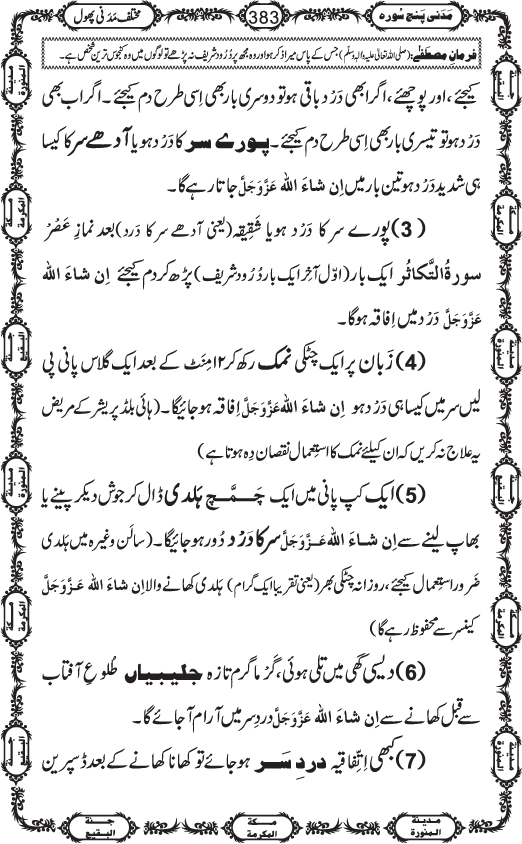 مَدَنی پنج سورہ
383
مختلف مَدَنی پھول
فرمانِ مصطَفٰے: (صلی اللہ تعالیٰ علیہ والہٖ وسلّم) جس کے پاس میرا ذکر ہو اور وہ مجھ پر دُرُود شریف نہ پڑھے تو لوگوں میں وہ کنجوس ترین شخص ہے۔
کیجئے، اور پوچھئے، اگر ابھی دَرْد باقی ہو تو دوسری بار بھی اِسی طرح دم کیجئے۔ اگر اب بھی
دَرْد ہو تو تیسری بار بھی اِسی طرح دم کیجئے۔ پورے سر کا دَرْد ہو یا آدھے سر کا کیسا
ہی شدید دَرْد ہو تین بار میں اِن شاءَ اللہ عَزَّوَجَلَّ جاتا رہے گا۔
(3) پورے سر کا دَرْد ہو یا شَقِیقہ (یعنی آدھے سر کا دَرد) بعد نمازِ عَصْر
سورۃُ التَّکاثُر ایک بار (اوّل آخِر ایک بار دُرُود شریف) پڑھ کر دم کیجئے اِن شاءَ اللہ
عَزَّوَجَلَّ دَرْد میں اِفاقہ ہو گا۔
(4) زَبان پر ایک چٹکی نمک رکھ کر ۱۲ مِنَٹ کے بعد ایک گلاس پانی پی
لیں سر میں کیسا ہی دَرْد ہو اِن شاءَ اللہ عَزَّوَجَلَّ اِفاقہ ہو جائیگا۔ (ہائی بلڈ پریشر کے مریض
یہ علاج نہ کریں کہ ان کیلئے نمک کا استعمال نقصان دِہ ہوتا ہے)
(5) ایک کپ پانی میں ایک چمّچ ہَلدی ڈال کر جوش دیکر پینے یا
بھاپ لینے سے اِن شاءَ اللہ عَزَّوَجَلَّ سر کا دَرْد دُور ہو جائیگا۔ (سالَن وغیرہ میں ہَلدی
ضَرور استِعمال کیجئے، روزانہ چٹکی بھر (یعنی تقریباً ایک گرام) ہَلدی کھانے والا اِن شاءَ اللہ عَزَّوَجَلَّ
کینسر سے محفوظ رہے گا)
(6) دیسی گھی میں تلی ہوئی، گرْما گرم تازہ جلیبیاں طُلوعِ آفتاب
سے قبل کھانے سے اِن شاءَ اللہ عَزَّوَجَلَّ دردِ سر میں آرام آ جائے گا۔
(7) کبھی اِتِّفاقیہ دردِ سَر ہو جائے تو کھانا کھانے کے بعد ڈسپرین
مدینۃ المنورۃ
مکۃ المکرمۃ
جنۃ البقیع